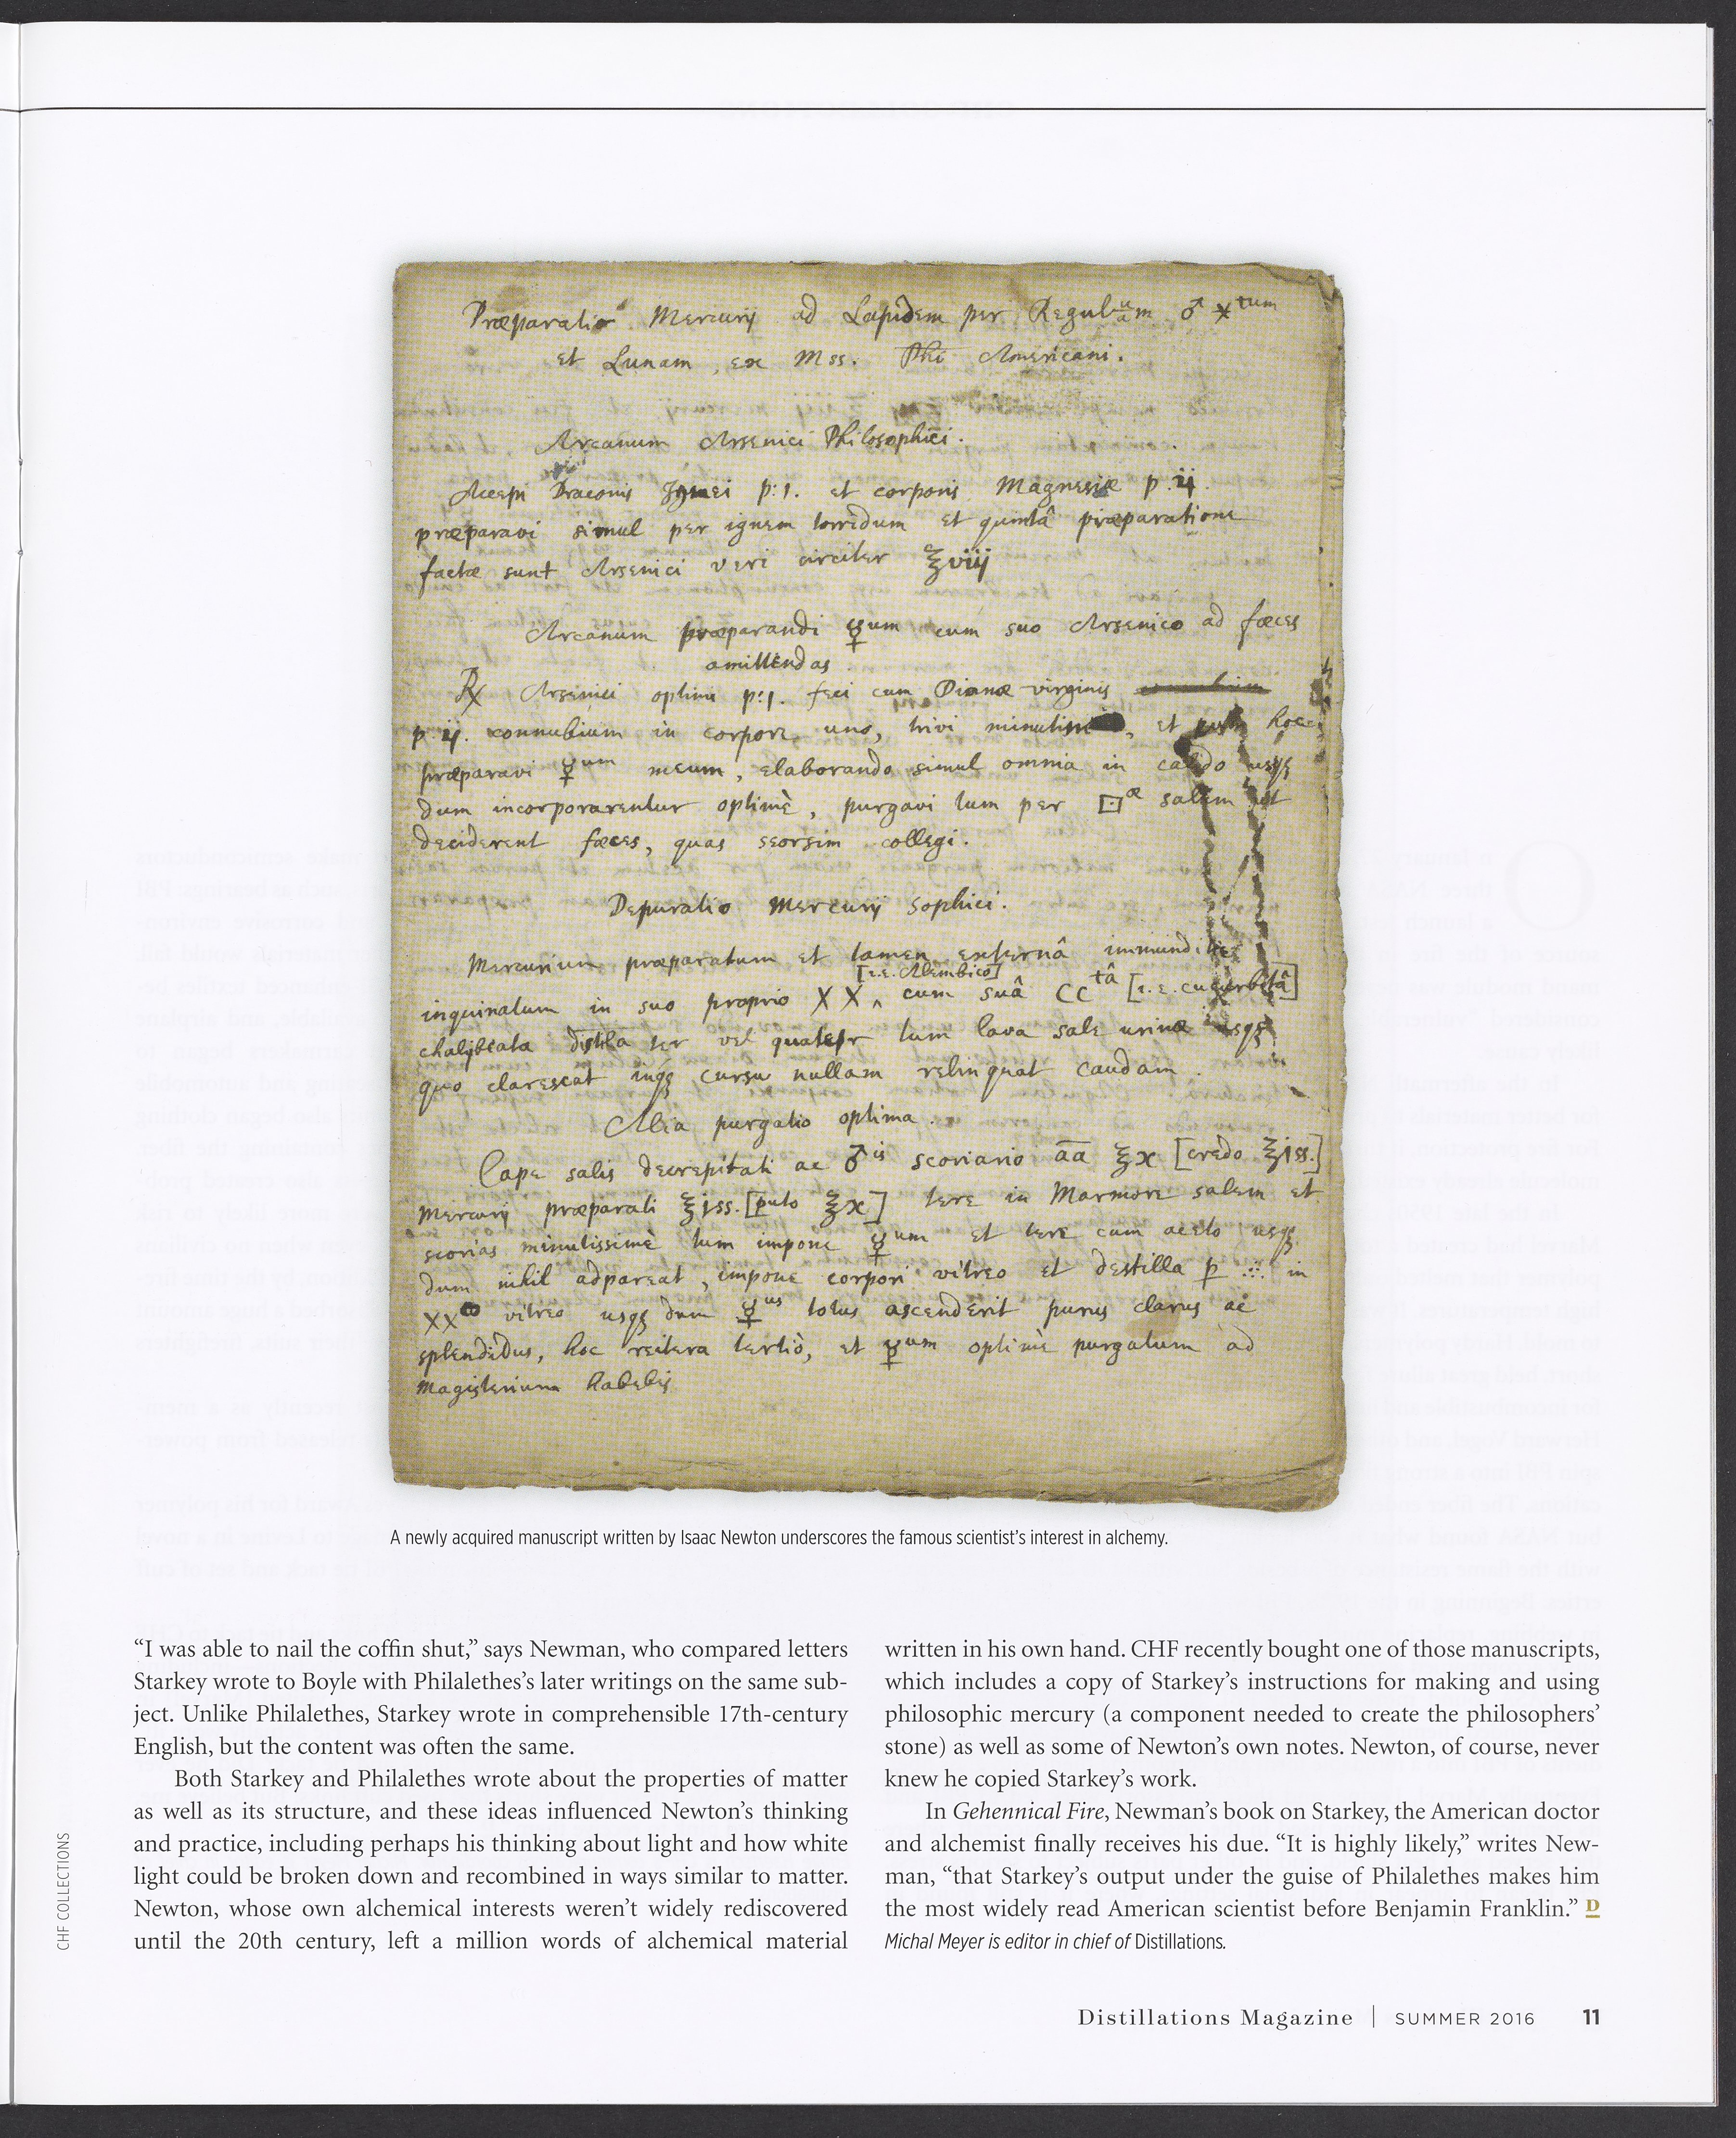 Præparatio Mercurij ad Lapidem per Regulum ♂ tum
et Lunam, ex Mss. Phi Americani.
Arcanum Arsenici Philosophici.
Accepi Draconis Ignei p:1. et corporis Magnesiæ p.ij.
præparavi simul per ignem torridum et quintâ præparatione
factæ sunt Arsenici veri circiter ℥viij
Arcanum præparandi ☿um cum suo Arsenico ad fæces
amittendas
℞ Arsenici optimi p:1. feci cum Dianæ virginis
p.ij. connubium in corpore uno, trivi , et hoc
præparavi ☿um meum, elaborando simul omnia in calido usqȝ
dum incorporarentur optimè, purgavi tum per ⊡æ salem ut
deciderent fæces, quas seorsim collegi.
Depuratio Mercurij Sophici.
Mercurium præparatum et tamen externâ immunditie
[i.e. Alembico]
inquinatum in suo proprio XX ‸ cum suâ CCtâ [i.e. cucurbitâ]
chalybeata distilla ter vel quater tum lava sale urinæ usqȝ
quo clarescat inqȝ cursu nullam relinquat caudam.
Alia purgatio optima.
Cape salis decrepitati ac ♂is scoriario āā ℥x [credo ℥jss.]
Mercurij præparati ℥jss. [puto ℥x] tere in Marmore salem et
scorias minutissimè tum impone ☿um et tere cum aceto usqȝ
dum nihil adpareat, impone corpori vitreo et destilla p ∴ in
XXto vitreo usqȝ dum ☿us totus ascenderit purus clarus ac
splendidus, hoc reitera tertiò, et ☿um optimè purgatum ad
Magisterium habebis
A newly acquired manuscript written by Isaac Newton underscores the famous scientist’s interest in alchemy.
“I was able to nail the coffin shut,” says Newman, who compared letters
Starkey wrote to Boyle with Philalethes’s later writings on the same sub-
ject. Unlike Philalethes, Starkey wrote in comprehensible 17th-century
English, but the content was often the same.
Both Starkey and Philalethes wrote about the properties of matter
as well as its structure, and these ideas influenced Newton’s thinking
and practice, including perhaps his thinking about light and how white
light could be broken down and recombined in ways similar to matter.
Newton, whose own alchemical interests weren’t widely rediscovered
until the 20th century, left a million words of alchemical material
written in his own hand. CHF recently bought one of those manuscripts,
which includes a copy of Starkey’s instructions for making and using
philosophic mercury (a component needed to create the philosophers’
stone) as well as some of Newton’s own notes. Newton, of course, never
knew he copied Starkey’s work.
In Gehennical Fire, Newman’s book on Starkey, the American doctor
and alchemist finally receives his due. “It is highly likely,” writes New-
man, “that Starkey’s output under the guise of Philalethes makes him
the most widely read American scientist before Benjamin Franklin.” D
Michal Meyer is editor in chief of Distillations.
CHF COLLECTIONS
Distillations Magazine | SUMMER 2016 11